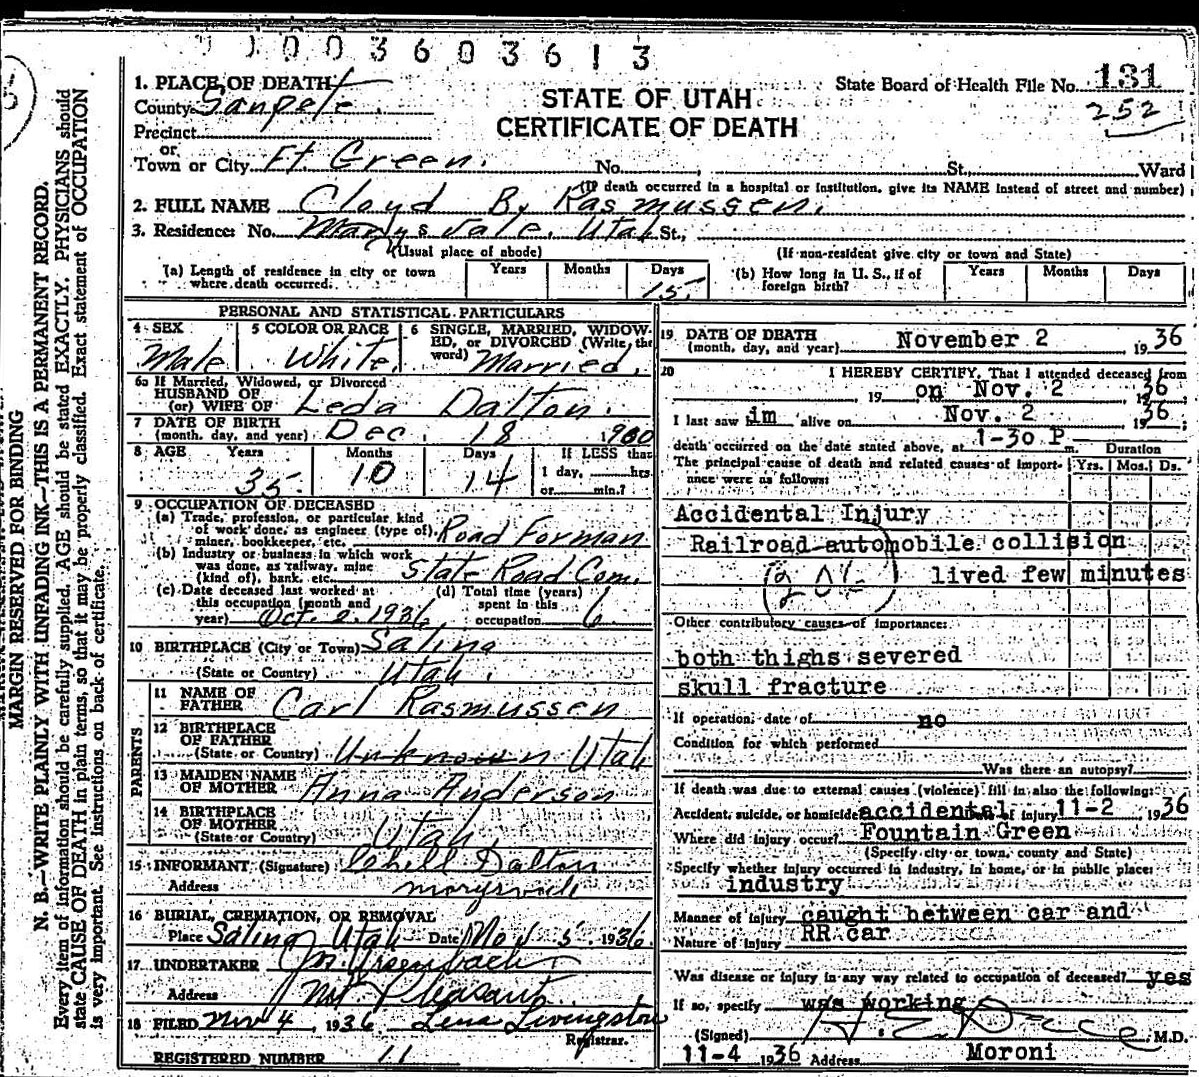 0003603613
1. PLACE OF DEATH
State Board of Health File No. 131
County Sanpete
STATE OF UTAH
252
CERTIFICATE OF DEATH
Precinct
or
Town or City Ft. Green. No. , St., Ward
(If death occurred in a hospital or institution, give its NAME instead of street and number)
2. FULL NAME Cloyd B. Rasmussen.
3. Residence: No. Marysvale, Utah St.,
(Usual place of abode) (If non-resident give city or town and State)
(a) Length of residence in city or town where death occurred. Years Months Days 15
(b) How long in U. S., if of foreign birth? Years Months Days
PERSONAL AND STATISTICAL PARTICULARS
4 SEX Male
5 COLOR OR RACE White
6 SINGLE, MARRIED, WIDOWED, or DIVORCED (Write the word) Married.
6a If Married, Widowed, or Divorced
HUSBAND OF
(or) WIFE OF Leda Dalton.
7 DATE OF BIRTH
(month, day, and year) Dec. 18 1900
8 AGE Years Months Days If LESS than
35 10 14 1 day, hrs.
or min.?
9 OCCUPATION OF DECEASED
(a) Trade, profession, or particular kind
of work done, as engineer (type of),
miner, bookkeeper, etc. Road Forman
(b) Industry or business in which work
was done, as railway, mine
(kind of), bank, etc. State Road Com.
(c) Date deceased last worked at
this occupation (month and
year) Oct. 2, 1936
(d) Total time (years)
spent in this
occupation 6
10 BIRTHPLACE (City or Town) Salina
(State or Country) Utah.
PARENTS
11 NAME OF
FATHER Carl Rasmussen
12 BIRTHPLACE
OF FATHER
(State or Country) Unknown Utah
13 MAIDEN NAME
OF MOTHER Anna Anderson
14 BIRTHPLACE
OF MOTHER
(State or Country) Utah,
15 INFORMANT (Signature) Dalton
Address
16 BURIAL, CREMATION, OR REMOVAL
Place Salina, Utah Date Nov 5, 1936
17 UNDERTAKER
Address Mt Pleasant
18 FILED Nov 4, 1936 Lena Livingston
Registrar.
REGISTERED NUMBER 11
19 DATE OF DEATH
(month, day, and year) November 2 1936
20 I HEREBY CERTIFY, That I attended deceased from
, 19 on Nov. 2 1936
I last saw im alive on Nov. 2 1936;
death occurred on the date stated above, at 1-30 P m. Duration
The principal cause of death and related causes of importance were as follows: Yrs. Mos. Ds.
Accidental Injury
Railroad-automobile collision
lived few minutes
Other contributory causes of importance:
both thighs severed
skull fracture
If operation, date of no
Condition for which performed
Was there an autopsy?
If death was due to external causes (violence) fill in also the following:
Accident, suicide, or homicide accidental of injury 11-2, 1936
Where did injury occur? Fountain Green
(Specify city or town, county and State)
Specify whether injury occurred in industry, in home, or in public place:
industry
Manner of injury caught between car and
Nature of injury RR car
Was disease or injury in any way related to occupation of deceased? yes
If so, specify was working
(Signed) M.D.
11-4 1936 Address Moroni
MARGIN RESERVED FOR BINDING
N. B.—WRITE PLAINLY WITH UNFADING INK—THIS IS A PERMANENT RECORD.
Every item of information should be carefully supplied. AGE should be stated EXACTLY. PHYSICIANS should
state CAUSE OF DEATH in plain terms, so that it may be properly classified. Exact statement of OCCUPATION
is very important. See instructions on back of certificate.